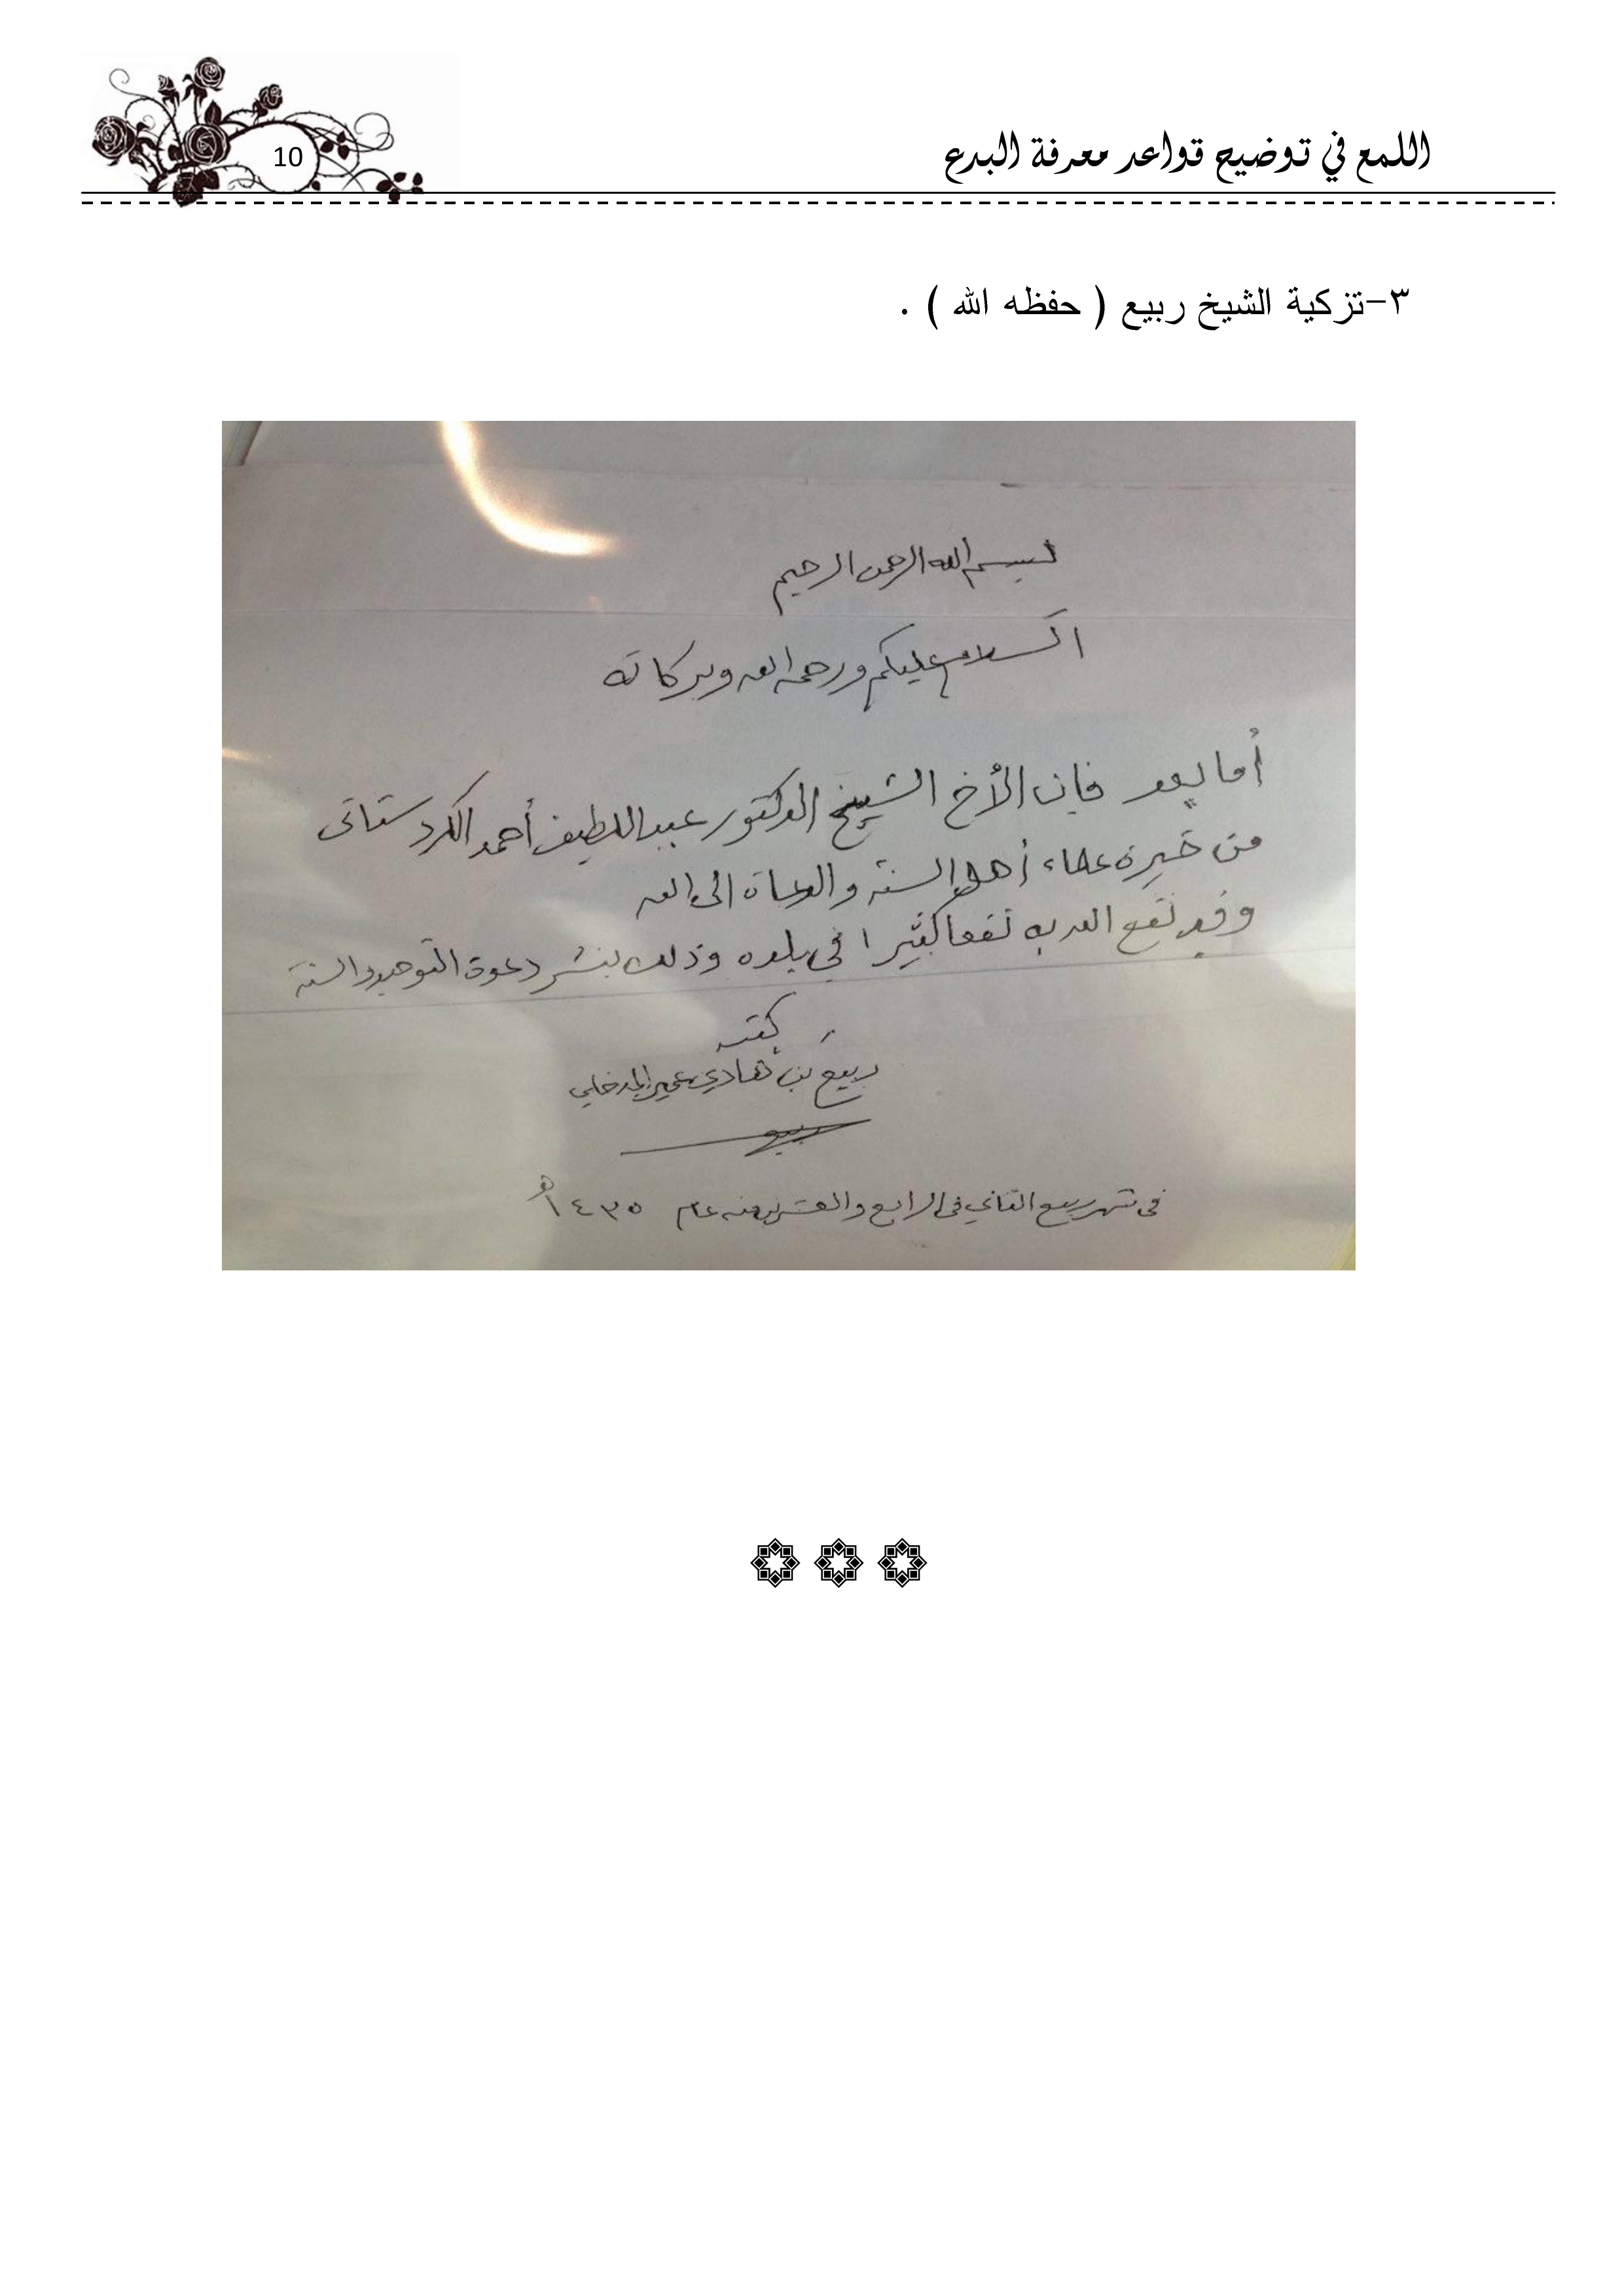 اللمع في توضيح قواعد معرفة البدع
10
٣-تزكية الشيخ ربيع ( حفظه الله ) .
بسم الله الرحمن الرحيم
السلام عليكم ورحمة الله وبركاته
أما بعد فإن الأخ الشيخ الدكتور عبد اللطيف أحمد الكردستاني
من خيرة علماء أهل السنة والدعاة إلى الله
وقد نفع الله به نفعا كثيرا في بلده وذلك بنشر دعوة التوحيد والسنة
كتبه
ربيع بن هادي عمير المدخلي
ربيع
في شهر ربيع الثاني في الرابع والعشرين منه عام ١٤٣٥ هـ